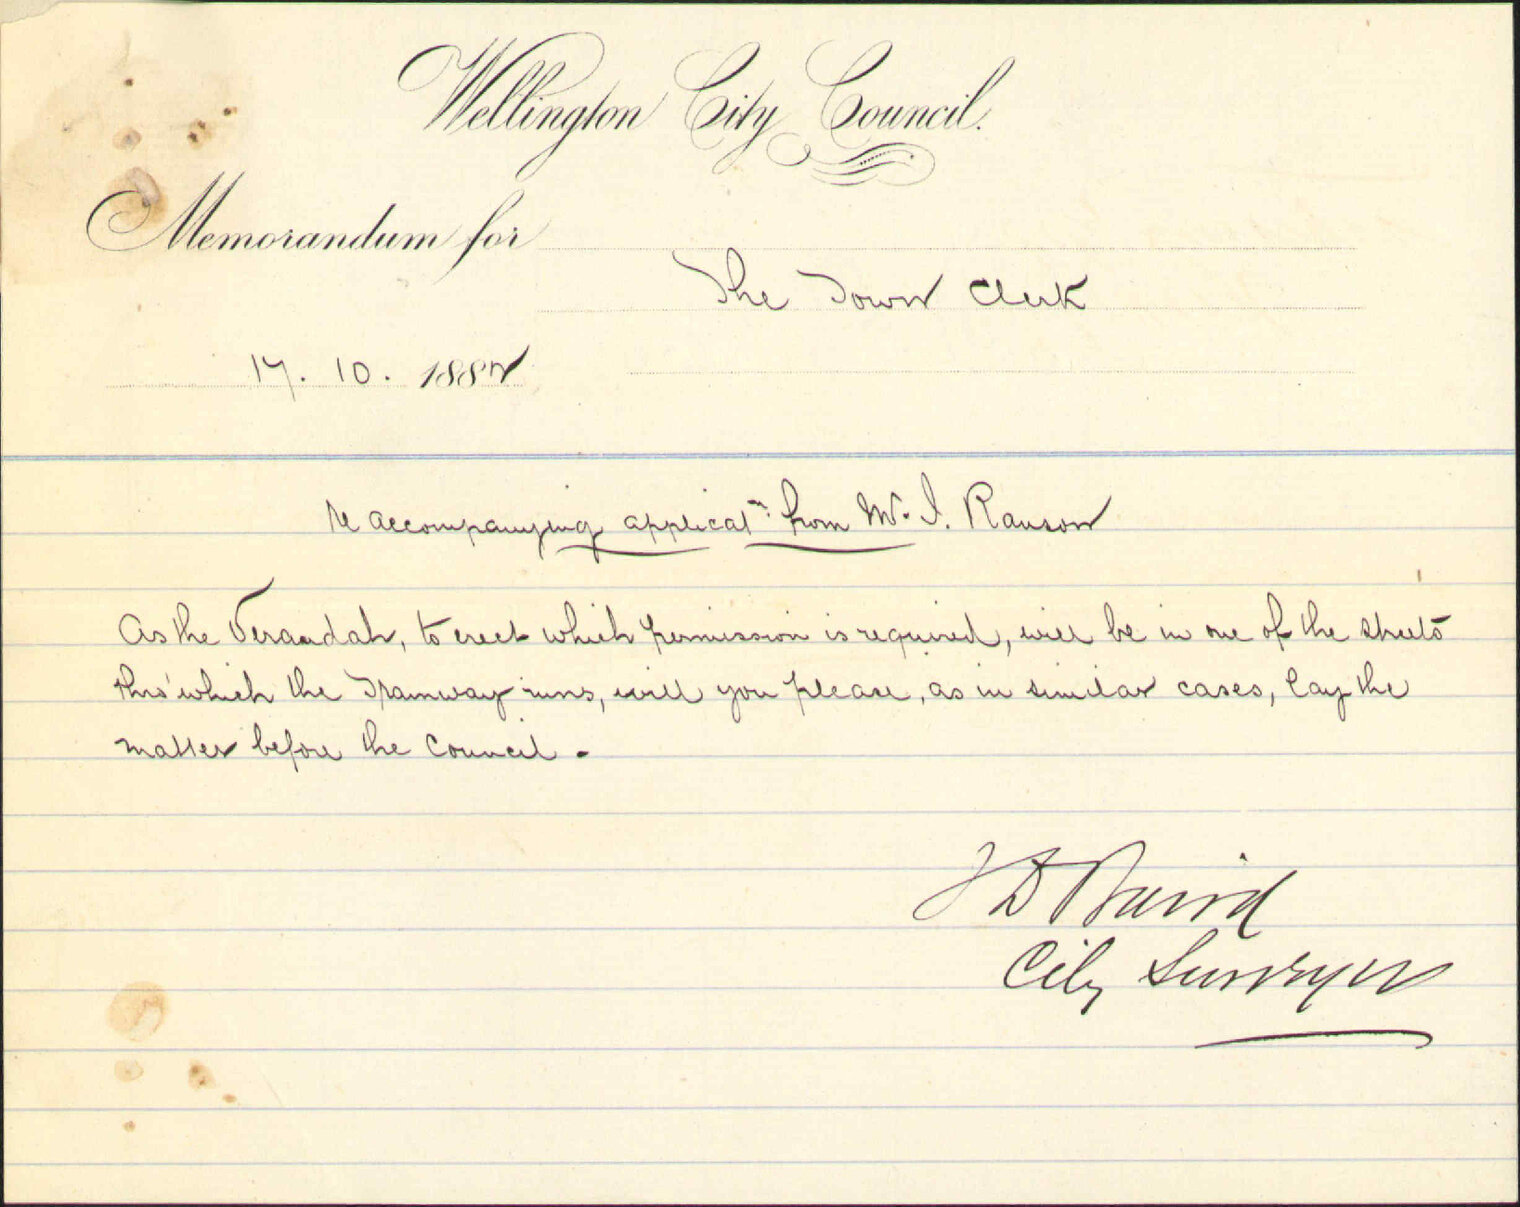 Wellington City Council.
Memorandum for
The Town Clerk
17. 10. 1887
re accompanying applicatn. from Mr. I. Ranson
As the Verandah, to erect which permission is required, will be in one of the streets
thro' which the Tramway runs, will you please, as in similar cases, lay the
matter before the Council -
J D Baird
City Surveyor